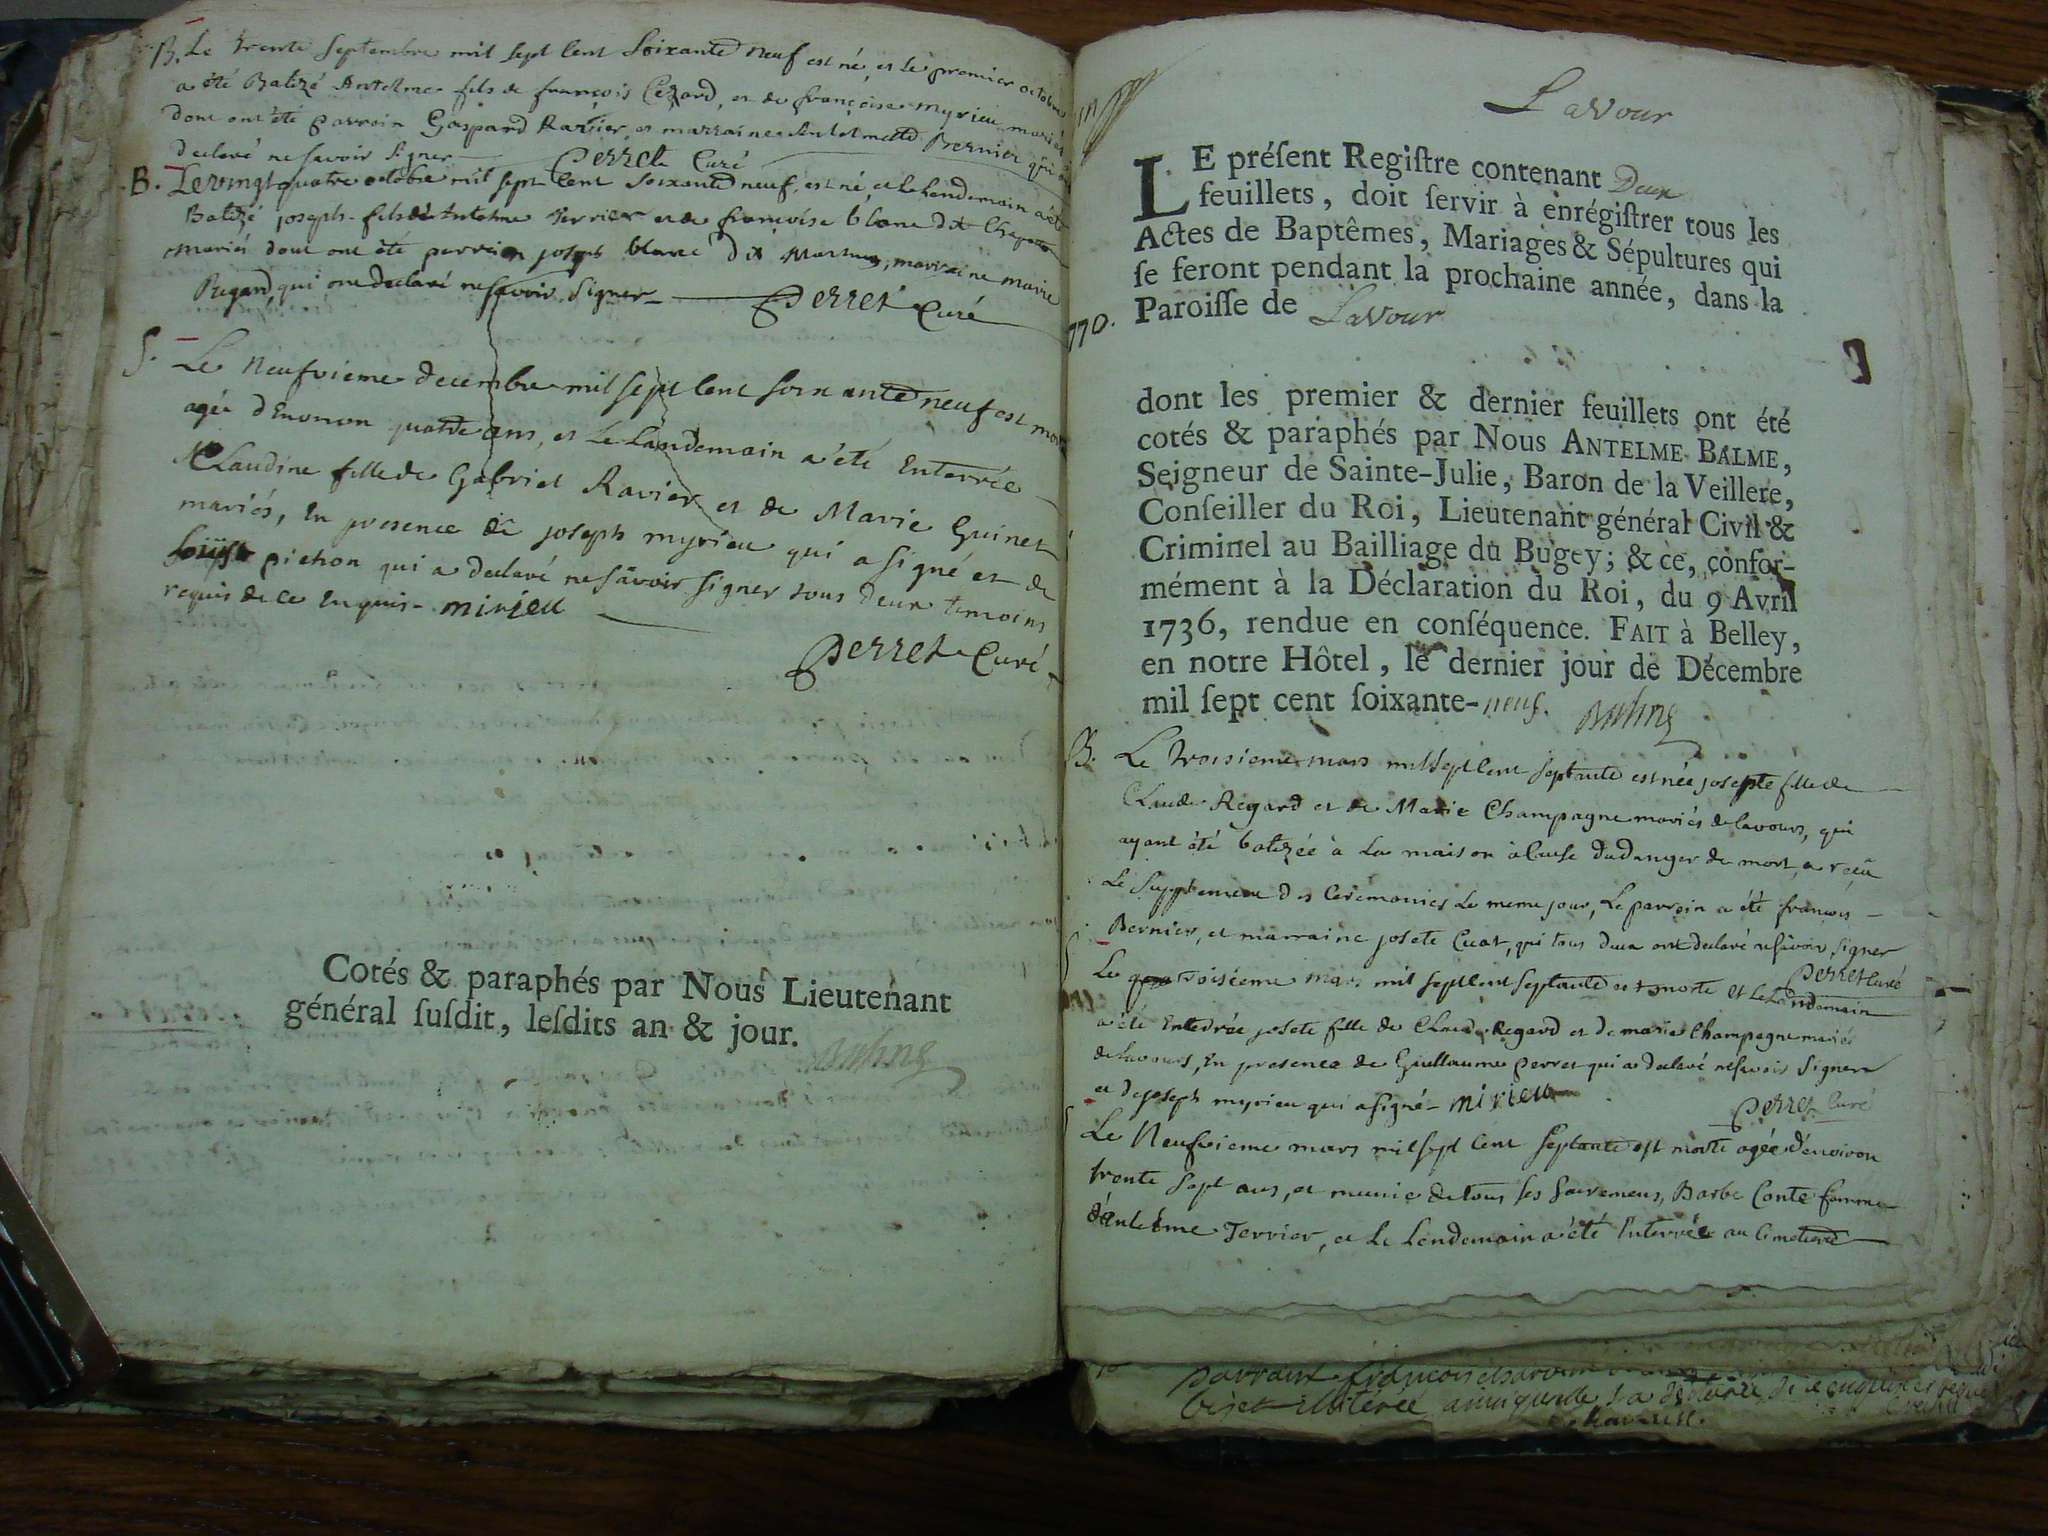 B. Le trente septembre mil sept cent soixante neuf est né, et le premier octobre
a été Batizé Antelme fils de françois Cézard, et de françoise myrieu mariés
dont ont été parrein Gaspard Ravier, et marraine Antelmette Bernier qui
declaré ne savoir signer Perret Curé
B. Le vingt quatre octobre mil sept cent soixante neuf, est né, et le lendemain a été
Batizé joseph fils de Antelme Terrier et de françoise blanc dit
mariés dont ont été perrein joseph blanc dit Martin, marraine marie
Regard, qui ont declaré ne savoir signer Perret Curé
S. Le Neufvieme decembre mil sept cent soixante neuf est
agée d'Environ quatre ans, et le Landemain a été Enterrée
Claudine fille de Gabriel Ravier et de Marie Guinet
mariés, En presence de joseph myrieu qui a signé et de
pichon qui a declaré ne savoir signer tous deux temoins
requis de ce Enquis - mirieu
Perret Curé
Cotés & paraphés par Nous Lieutenant
général susdit, lesdits an & jour.
Balme
Lavour
LE présent Registre contenant Deux
feuillets, doit servir à enrégistrer tous les
Actes de Baptêmes, Mariages & Sépultures qui
se feront pendant la prochaine année, dans la
Paroisse de Lavour
770.
dont les premier & dernier feuillets ont été
cotés & paraphés par Nous ANTELME BALME,
Seigneur de Sainte-Julie, Baron de la Veillere,
Conseiller du Roi, Lieutenant général Civil &
Criminel au Bailliage du Bugey; & ce, confor-
mément à la Déclaration du Roi, du 9 Avril
1736, rendue en conséquence. FAIT à Belley,
en notre Hôtel, le dernier jour de Décembre
mil sept cent soixante-neuf. Balme
B. Le troisieme mars mil sept cent septante est née josepte fille de
Claude Regard et de Marie Champagne mariés de lavours, qui
ayant été batizée à la maison à Cause du danger de mort, a reçu
le supplement des Ceremonies le meme jour, Le parrein a été francois
Bernier, et marraine josete Cuat, qui tous deux ont declaré ne savoir signer
Perret Curé
S Le troisieme mars mil sept cent septante est morte et le Lendemain
a été Enterrée josete fille de Claude Regard et de marie Champagne mariés
de Lavours, En presence de Guillaume perret qui a declaré ne savoir signer
et de joseph myrieu qui a signé - mirieu
Perret Curé
S Le Neufvieme mars mil sept cent septante est morte agée d'environ
trente sept ans, et munie de tous ses sacremens, Barbe Conte femme
d'antelme Terrier, et le Lendemain a été Enterrée au Cimetiere
parrain françois
illiterée